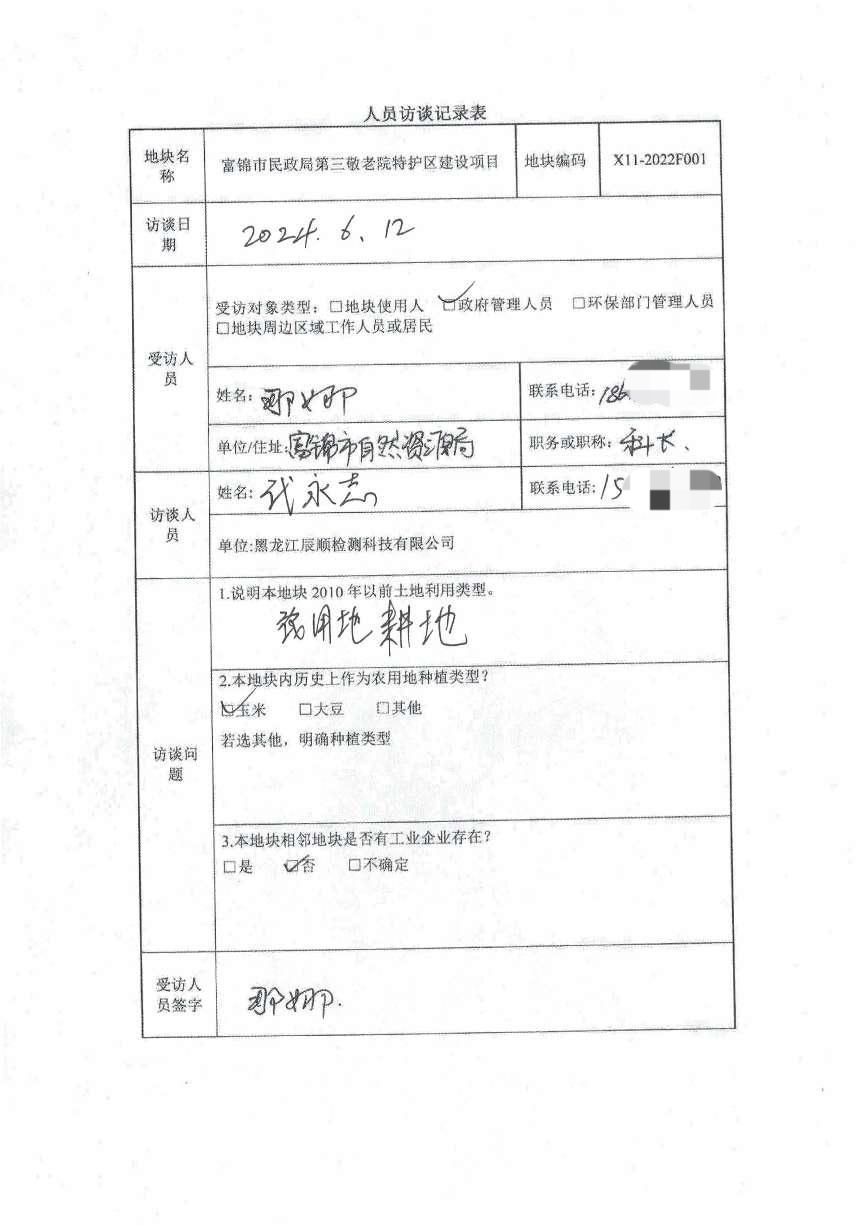 人员访谈记录表
地块名称 富锦市民政局第三敬老院特护区建设项目 地块编码 X11-2022F001
访谈日期 2024.6、12
受访人员
受访对象类型：□地块使用人 ☑政府管理人员 □环保部门管理人员
□地块周边区域工作人员或居民
姓名：那娜 联系电话：186
单位/住址：富锦市自然资源局 职务或职称：科长、
访谈人员
姓名：代永志 联系电话：15
单位:黑龙江辰顺检测科技有限公司
访谈问题
1.说明本地块2010年以前土地利用类型。
农用地 耕地
2.本地块内历史上作为农用地种植类型？
☑玉米 □大豆 □其他
若选其他，明确种植类型
3.本地块相邻地块是否有工业企业存在？
□是 ☑否 □不确定
受访人员签字 那娜.